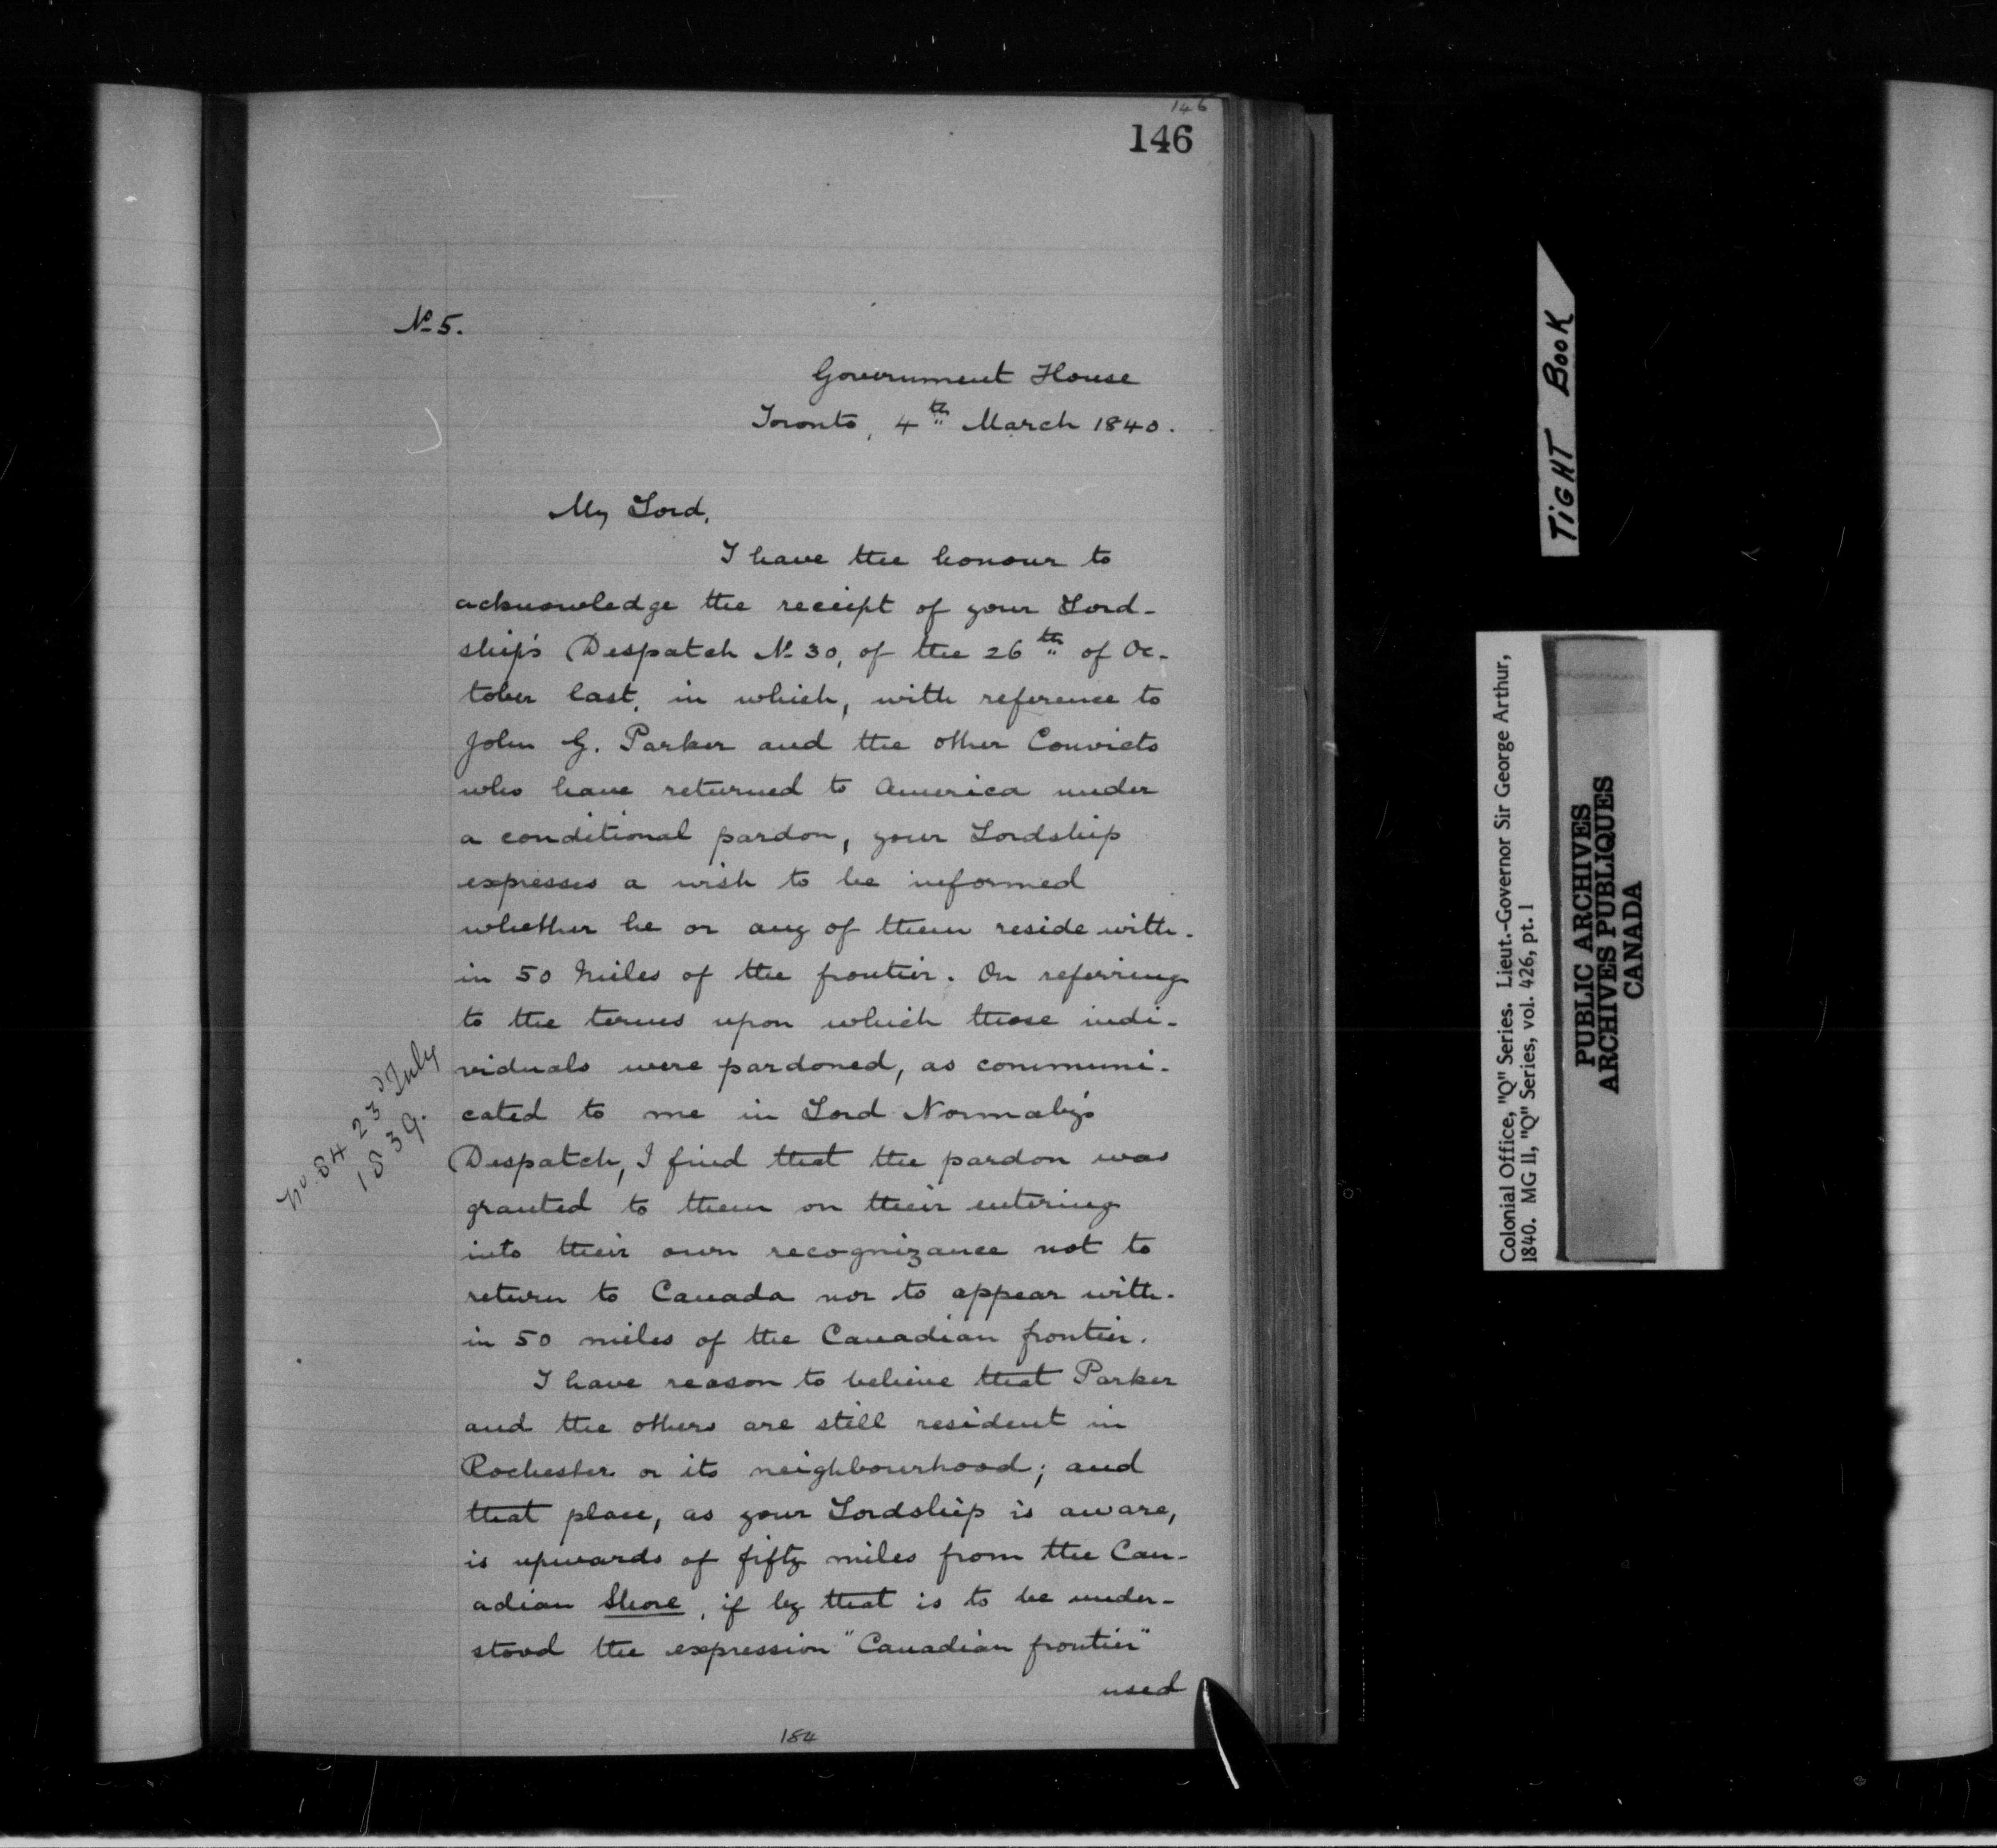 146
146
No 5.
Government House
Toronto, 4th March 1840.
My Lord,
I have the honour to
acknowledge the receipt of your Lord-
ship's Despatch No 30, of the 26th of Oc-
tober last, in which, with reference to
John G. Parker and the other Convicts
who have returned to America under
a conditional pardon, your Lordship
expresses a wish to be informed
whether he or any of them reside with-
in 50 Miles of the frontier. On referring
to the terms upon which those indi-
viduals were pardoned, as communi-
cated to me in Lord Normanby's
No. 84 23d July
1839.
Despatch, I find that the pardon was
granted to them on their entering
into their own recognizance not to
return to Canada nor to appear with-
in 50 miles of the Canadian frontier.
I have reason to believe that Parker
and the others are still resident in
Rochester or its neighbourhood; and
that place, as your Lordship is aware,
is upwards of fifty miles from the Can-
adian Shore, if by that is to be under-
stood the expression "Canadian frontier"
used
184
TIGHT BOOK
Colonial Office, "Q" Series. Lieut.-Governor Sir George Arthur,
1840. MG 11, "Q" Series, vol. 426, pt. 1
PUBLIC ARCHIVES
ARCHIVES PUBLIQUES
CANADA